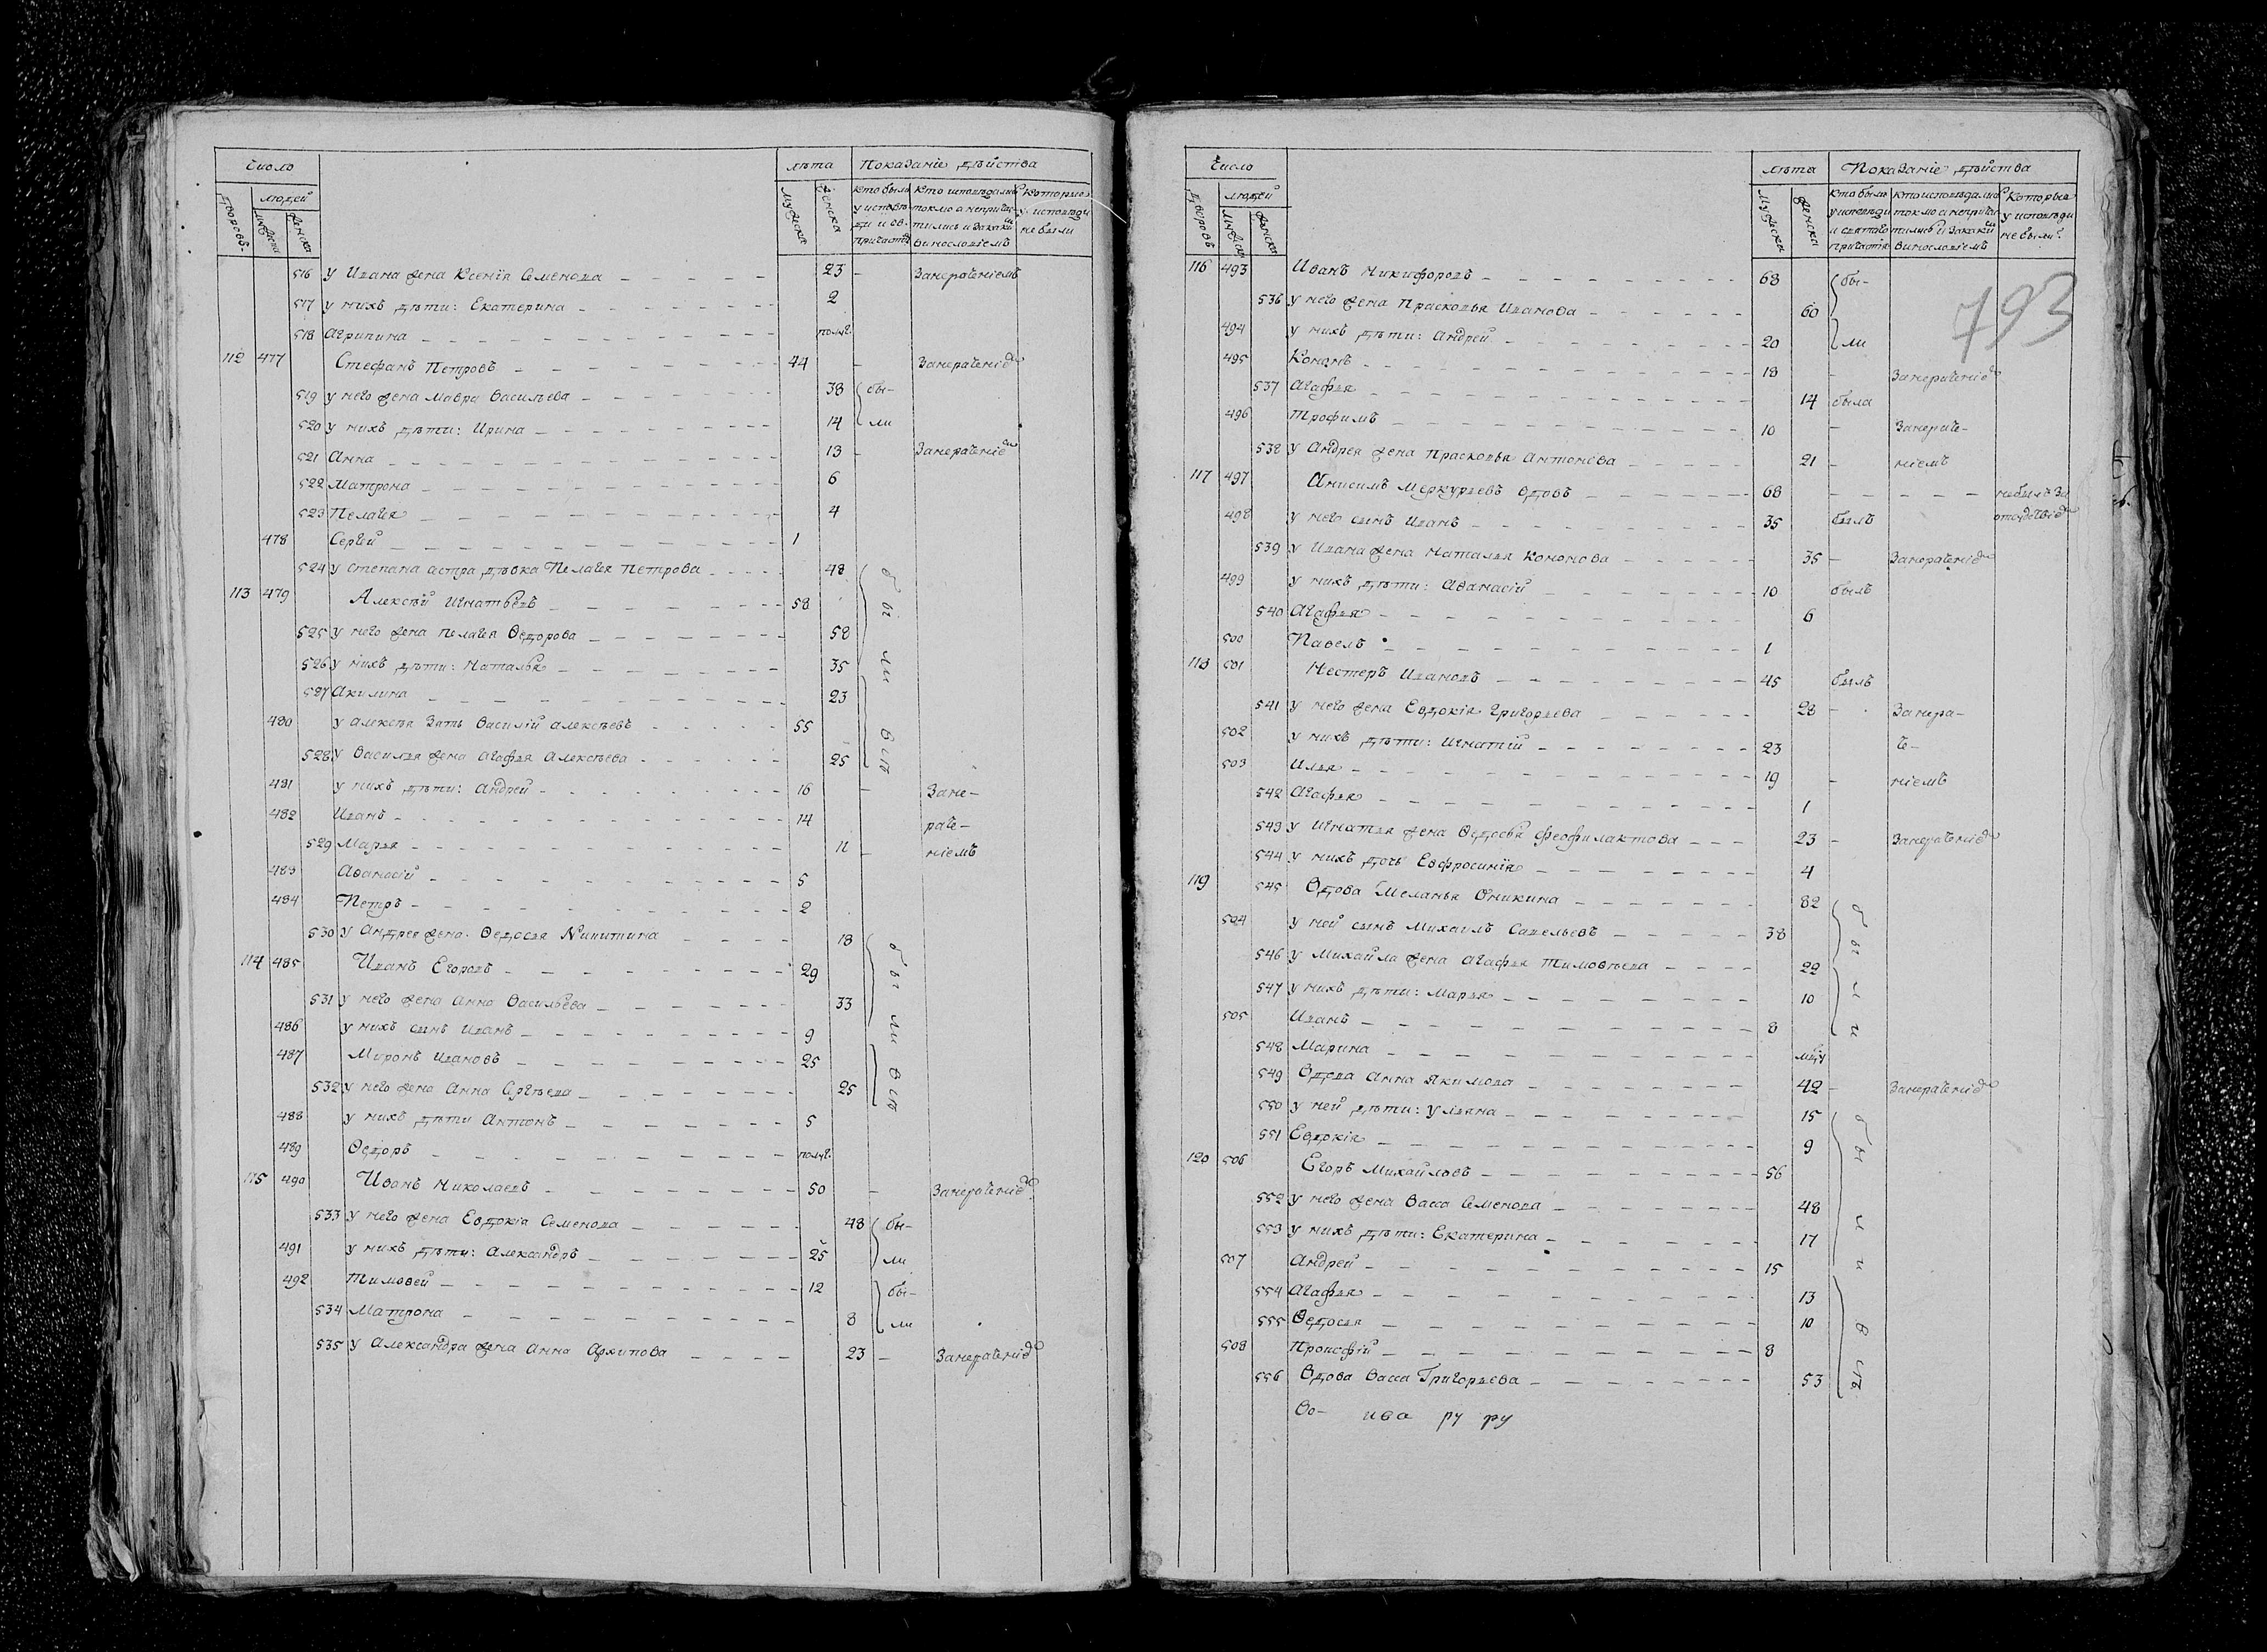 Число лѣта Показаніе дѣйства
дворовъ людей мужеска женска кто былъ у исповѣди и св. причастія кто исповѣдались токмо а непричастились и за какимъ винословіемъ которые у исповѣди не были
мужска женска
516 У Ивана жена Ксенія Семенова 23 - Занераченіемъ
517 у нихъ дѣти: Екатерина 2
518 Агрипина полуг.
112 477 Стефанъ Петровъ 44 - Занераченіе
519 у него жена Мавра Васильева 38 бы-
520 у нихъ дѣти: Ирина 14 ли
521 Анна 13 - Занераченіе
522 Матрона 6
523 Пелагея 4
478 Сергей 1
524 у Степана сестра дѣвка Пелагея Петрова 48
113 479 Алексѣй Игнатьевъ 58
525 у него жена Пелагея Ѳедорова 58
526 у нихъ дѣти: Наталья 35
527 Акилина 23
были
480 у Алексѣя зять Василій Алексѣевъ 55
528 У Василья жена Агафья Алексѣева 25
всѣ
481 у нихъ дѣти: Андрей 16 - Зане-
482 Иванъ 14 раче-
529 Марья 11 - ніемъ
483 Аѳанасій 5
484 Петръ 2
530 у Андрея жена Ѳедосья Никитина 18
114 485 Иванъ Егоровъ 29
531 у него жена Анна Васильева 33
486 у нихъ сынъ Иванъ 9
были
487 Миронъ Ивановъ 25
532 у него жена Анна Сергѣева 25
всѣ
488 у нихъ дѣти Антонъ 5
489 Ѳедоръ полуг.
115 490 Иванъ Николаевъ 50 - Занераченіе
533 у него жена Евдокія Семенова 48 бы-
491 у нихъ дѣти: Александръ 25 ли
492 Тимоѳей 12 бы-
534 Матрона 8 ли
535 у Александра жена Анна Архипова 23 - Занераченіе
793
Число лѣта Показаніе дѣйства
дворовъ людей мужеска женска кто былъ у исповѣди и святаго причастія кто исповѣдались токмо и непричастились и за какимъ винословіемъ которые у исповѣди не были
мужска женска
116 493 Иванъ Никифоровъ 68 бы-
536 у него жена Прасковья Иванова 60
494 у нихъ дѣти: Андрей 20 ли
495 Кононъ 18 - Занераченіе
537 Агафья 14 была
496 Трофимъ 10 - Занераче-
538 у Андрея жена Прасковья Антонева 21 - ніемъ
117 497 Анисимъ Меркурьевъ вдовъ 68 небылъ за
498 у него сынъ Иванъ 35 былъ
539 у Ивана жена Наталья Кононова 35 - Занераченіе
499 у нихъ дѣти: Аѳанасій 10 былъ
540 Агафья 6
500 Павелъ 1
118 501 Нестеръ Ивановъ 45 былъ
541 у него жена Евдокія Григорьева 28 - Занера-
502 у нихъ дѣти: Игнатій 23 че-
503 Илья 19 - ніемъ
542 Агафья 1
543 у Игнатья жена Ѳедосья Феофилактова 23 - Занераченіе
544 у нихъ дочь Евфросинія 4
119 545 Вдова Меланья Оникина 82
504 у ней сынъ Михаилъ Савельевъ 38
546 у Михайла жена Агафья Тимоѳѣева 22
547 у нихъ дѣти: Марья 10
505 Иванъ 8
были
548 Марина
549 Вдова Анна Якимова 42 - Занераченіе
550 у ней дѣти: Ульяна 15
551 Евдокія 9
120 506 Егоръ Михайловъ 56
552 у него жена Васса Семенова 48
553 у нихъ дѣти: Екатерина 17
507 Андрей 15
были
554 Агафья 13
555 Ѳедосья 10
508 Прокофій 8
556 Вдова Васса Григорьева 53
всѣ
Во- ива ру ру